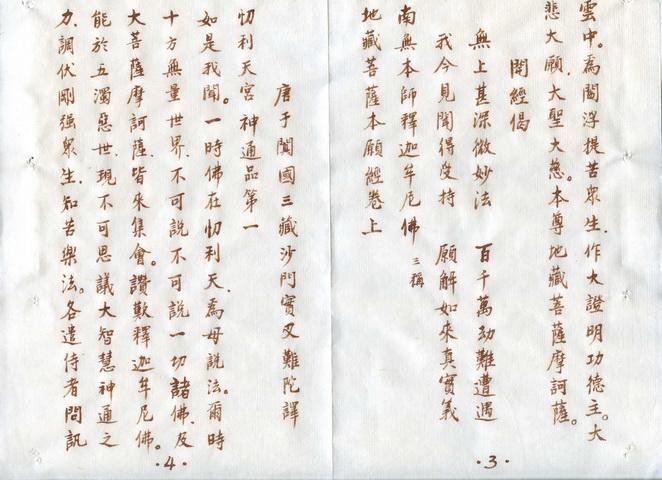 雲中。為閻浮提苦衆生,作大證明功德主。大
悲大願,大聖大慈。本尊地藏菩薩摩訶薩。
開經偈
無上甚深微妙法 百千萬劫難遭遇
我今見聞得受持 願解如來真實義
南無本師釋迦牟尼佛 三稱
地藏菩薩本願經卷上
·3·
唐于闐國三藏沙門實叉難陀譯
忉利天宮神通品第一
如是我聞。一時佛在忉利天,為母說法。爾時
十方無量世界,不可說不可說一切諸佛,及
大菩薩摩訶薩,皆來集會。讚歎釋迦牟尼佛。
能於五濁惡世,現不可思議大智慧神通之
力,調伏剛强衆生,知苦樂法。各遣侍者問訊
·4·